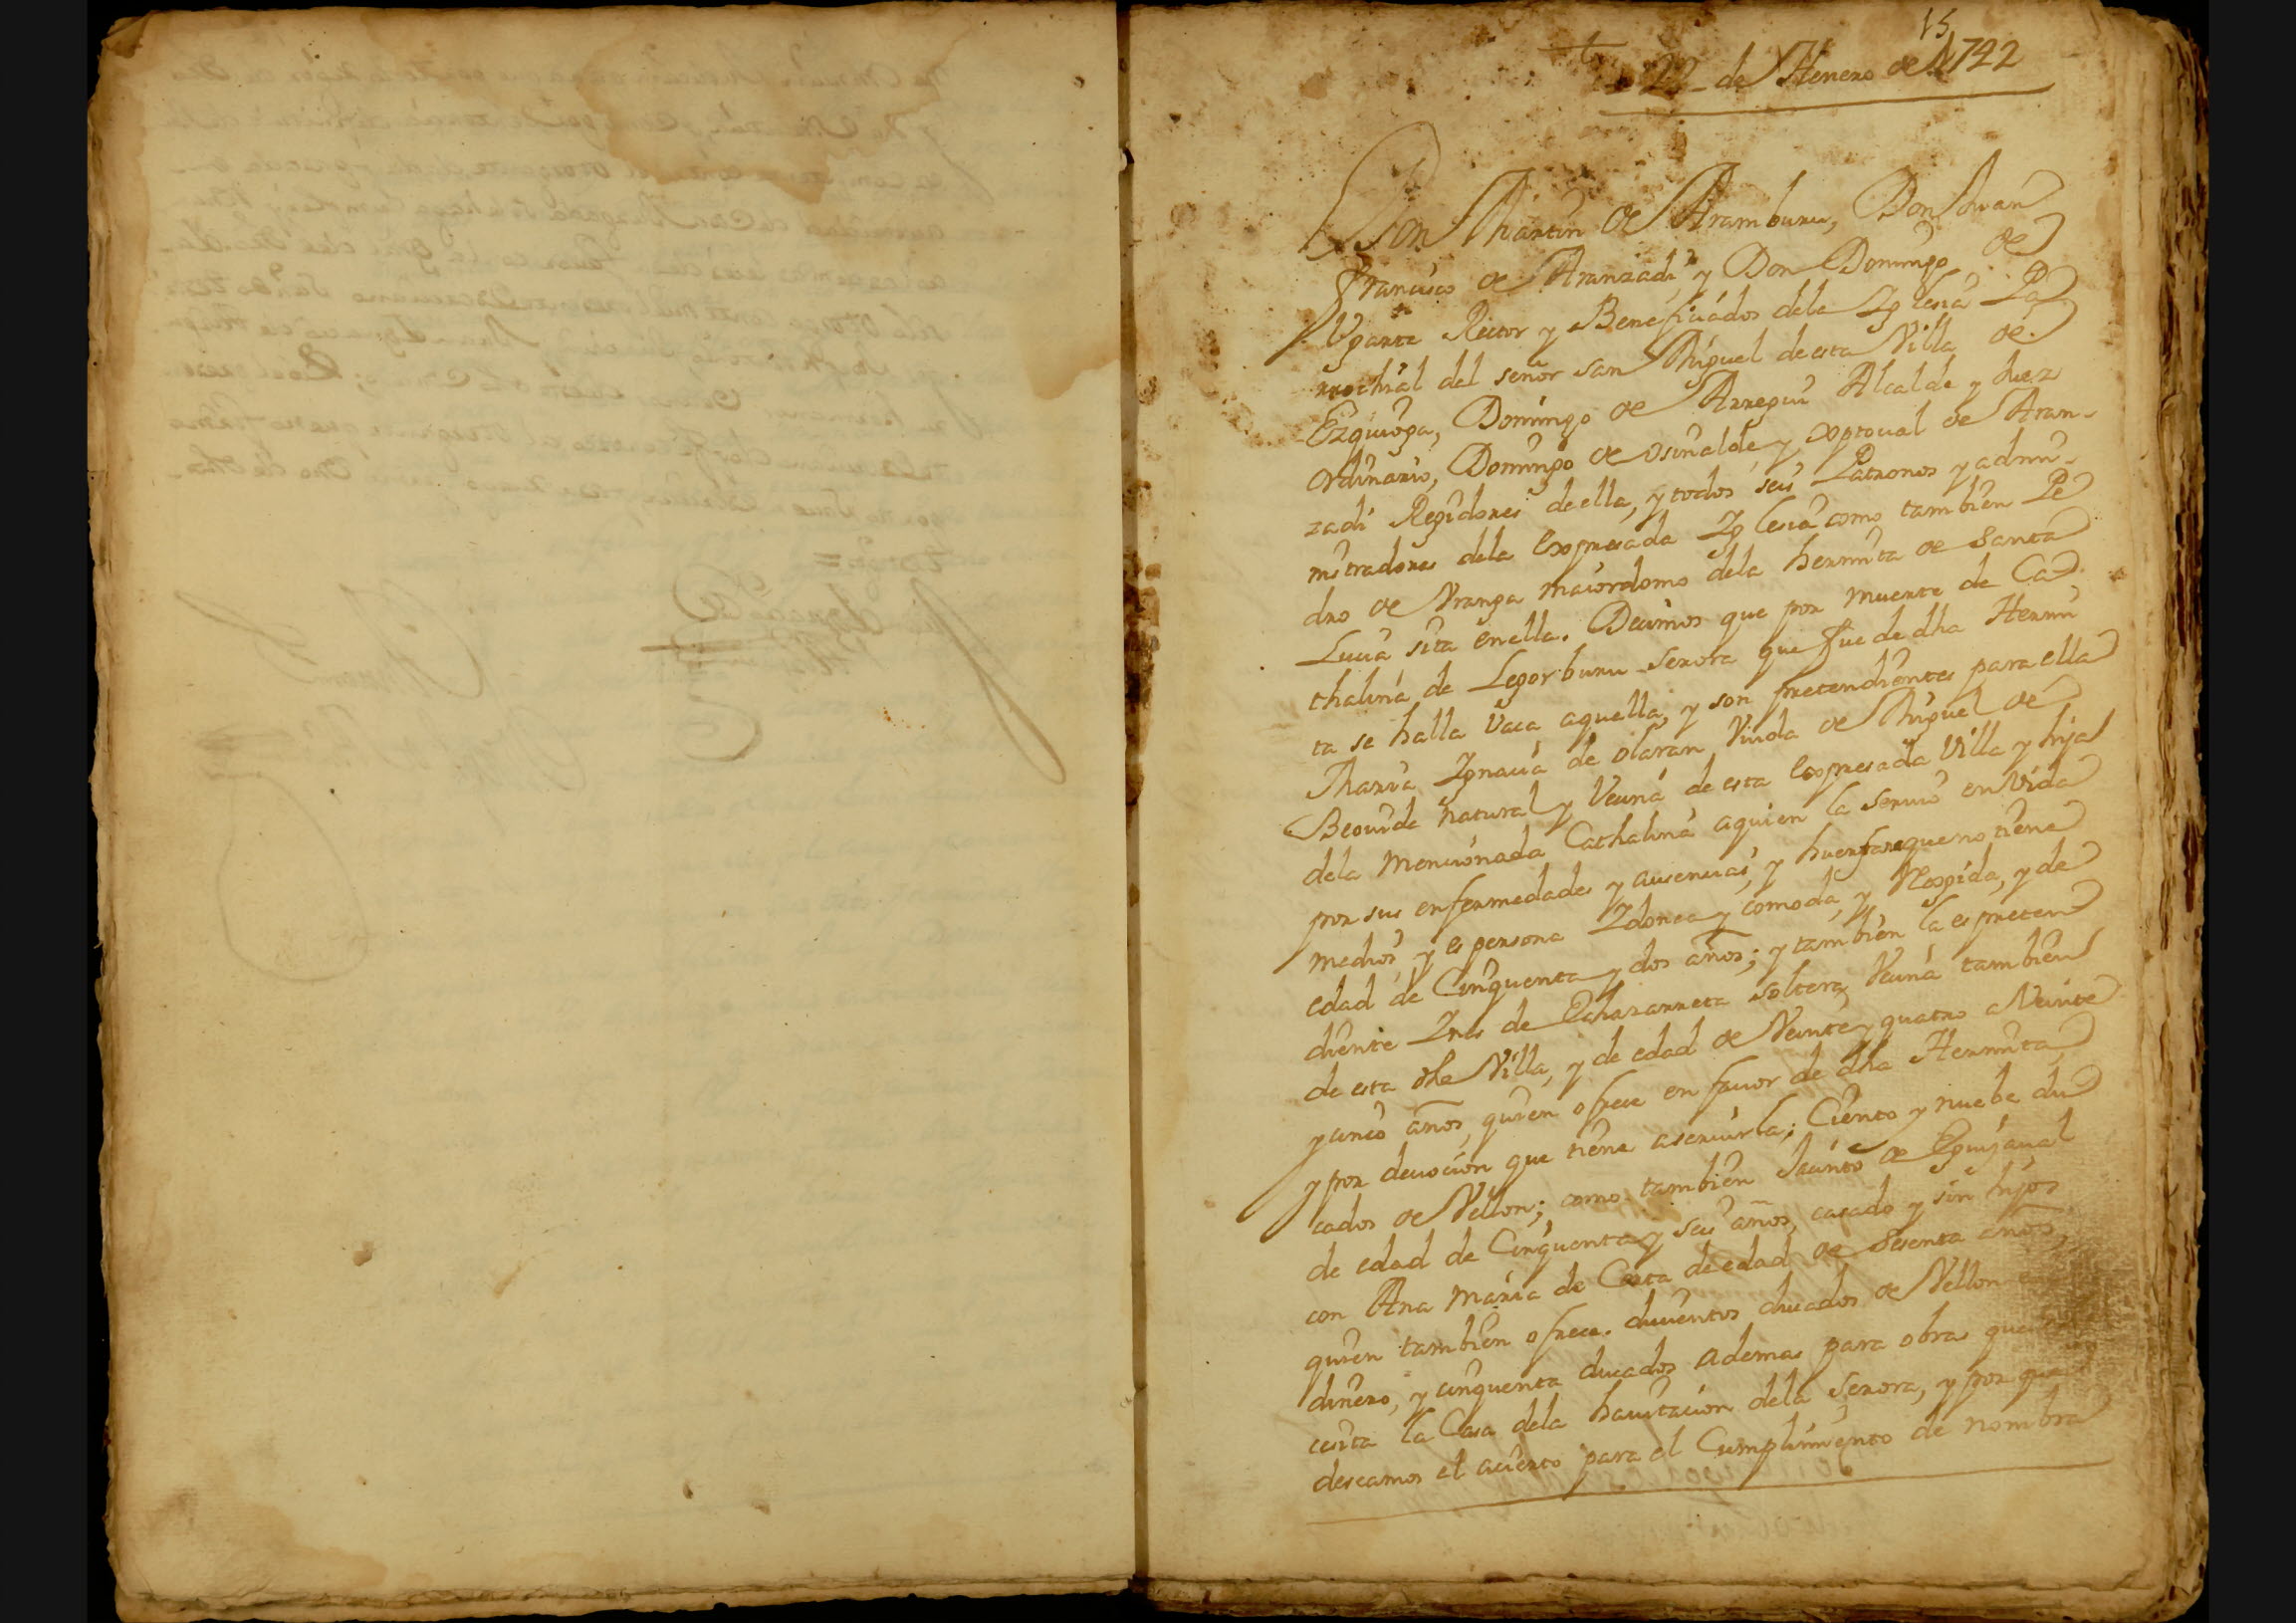 15
22 de Henero de 1742
Don Martin de Aramburu, Don Juan
Francisco de Aranzadi y Don Domingo de
Ugarte Rector y Beneficiados dela Iglesia Pa
rrochial del señor san Miguel de esta Villa de
Ezquioga, Domingo de Arregui Alcalde y Juez
ordinario, Domingo de osinalde y xptoual de Aran-
zadi Regidores de ella, y todos seis Patronos y admi-
nistradores dela Expresada Iglesia como tambien Pe
dro de Vranga maiordomo dela hermita de Santa
Lucia sita enella. Decimos que por muerte de Ca
thalina de Legorburu serora que fue de dha Hermi
ta se halla Vaca aquella, y son pretendientes para ella
Maria Ignacia de olaran Viuda de Miguel de
Beovide natural y Vecina de esta Expresada Villa y hija
dela mencionada Cathalina aquien la seruio en Vida
por sus enfermedades y ausencias, y huerfana que no tiene
medios, y es persona Idonea y comoda, y Hespida, y de
edad de Cinquenta y dos años; y tambien la es preten
diente Ines de Echazarreta soltera, Vecina tambien
de esta dha Villa, y de edad de Veinte y quatro a Veinte
y cinco años, quien ofrece en fauor de dha Hermita
y por deuocion que tiene aseruirla; Ciento y nuebe du
cados de Vellon; como tambien Jacinto de Eguizaual
de edad de Cinquenta y seis años, casado y sin hijos
con Ana Maria de Corta de edad de sesenta años,
quien tambien ofrece. ducientos ducados de Vellon en
dinero, y cinquenta ducados ademas para obras que ne
cesita la Casa dela hauitacion dela serora, y por que
deseamos el acierto para el Cumplimiento de nombra